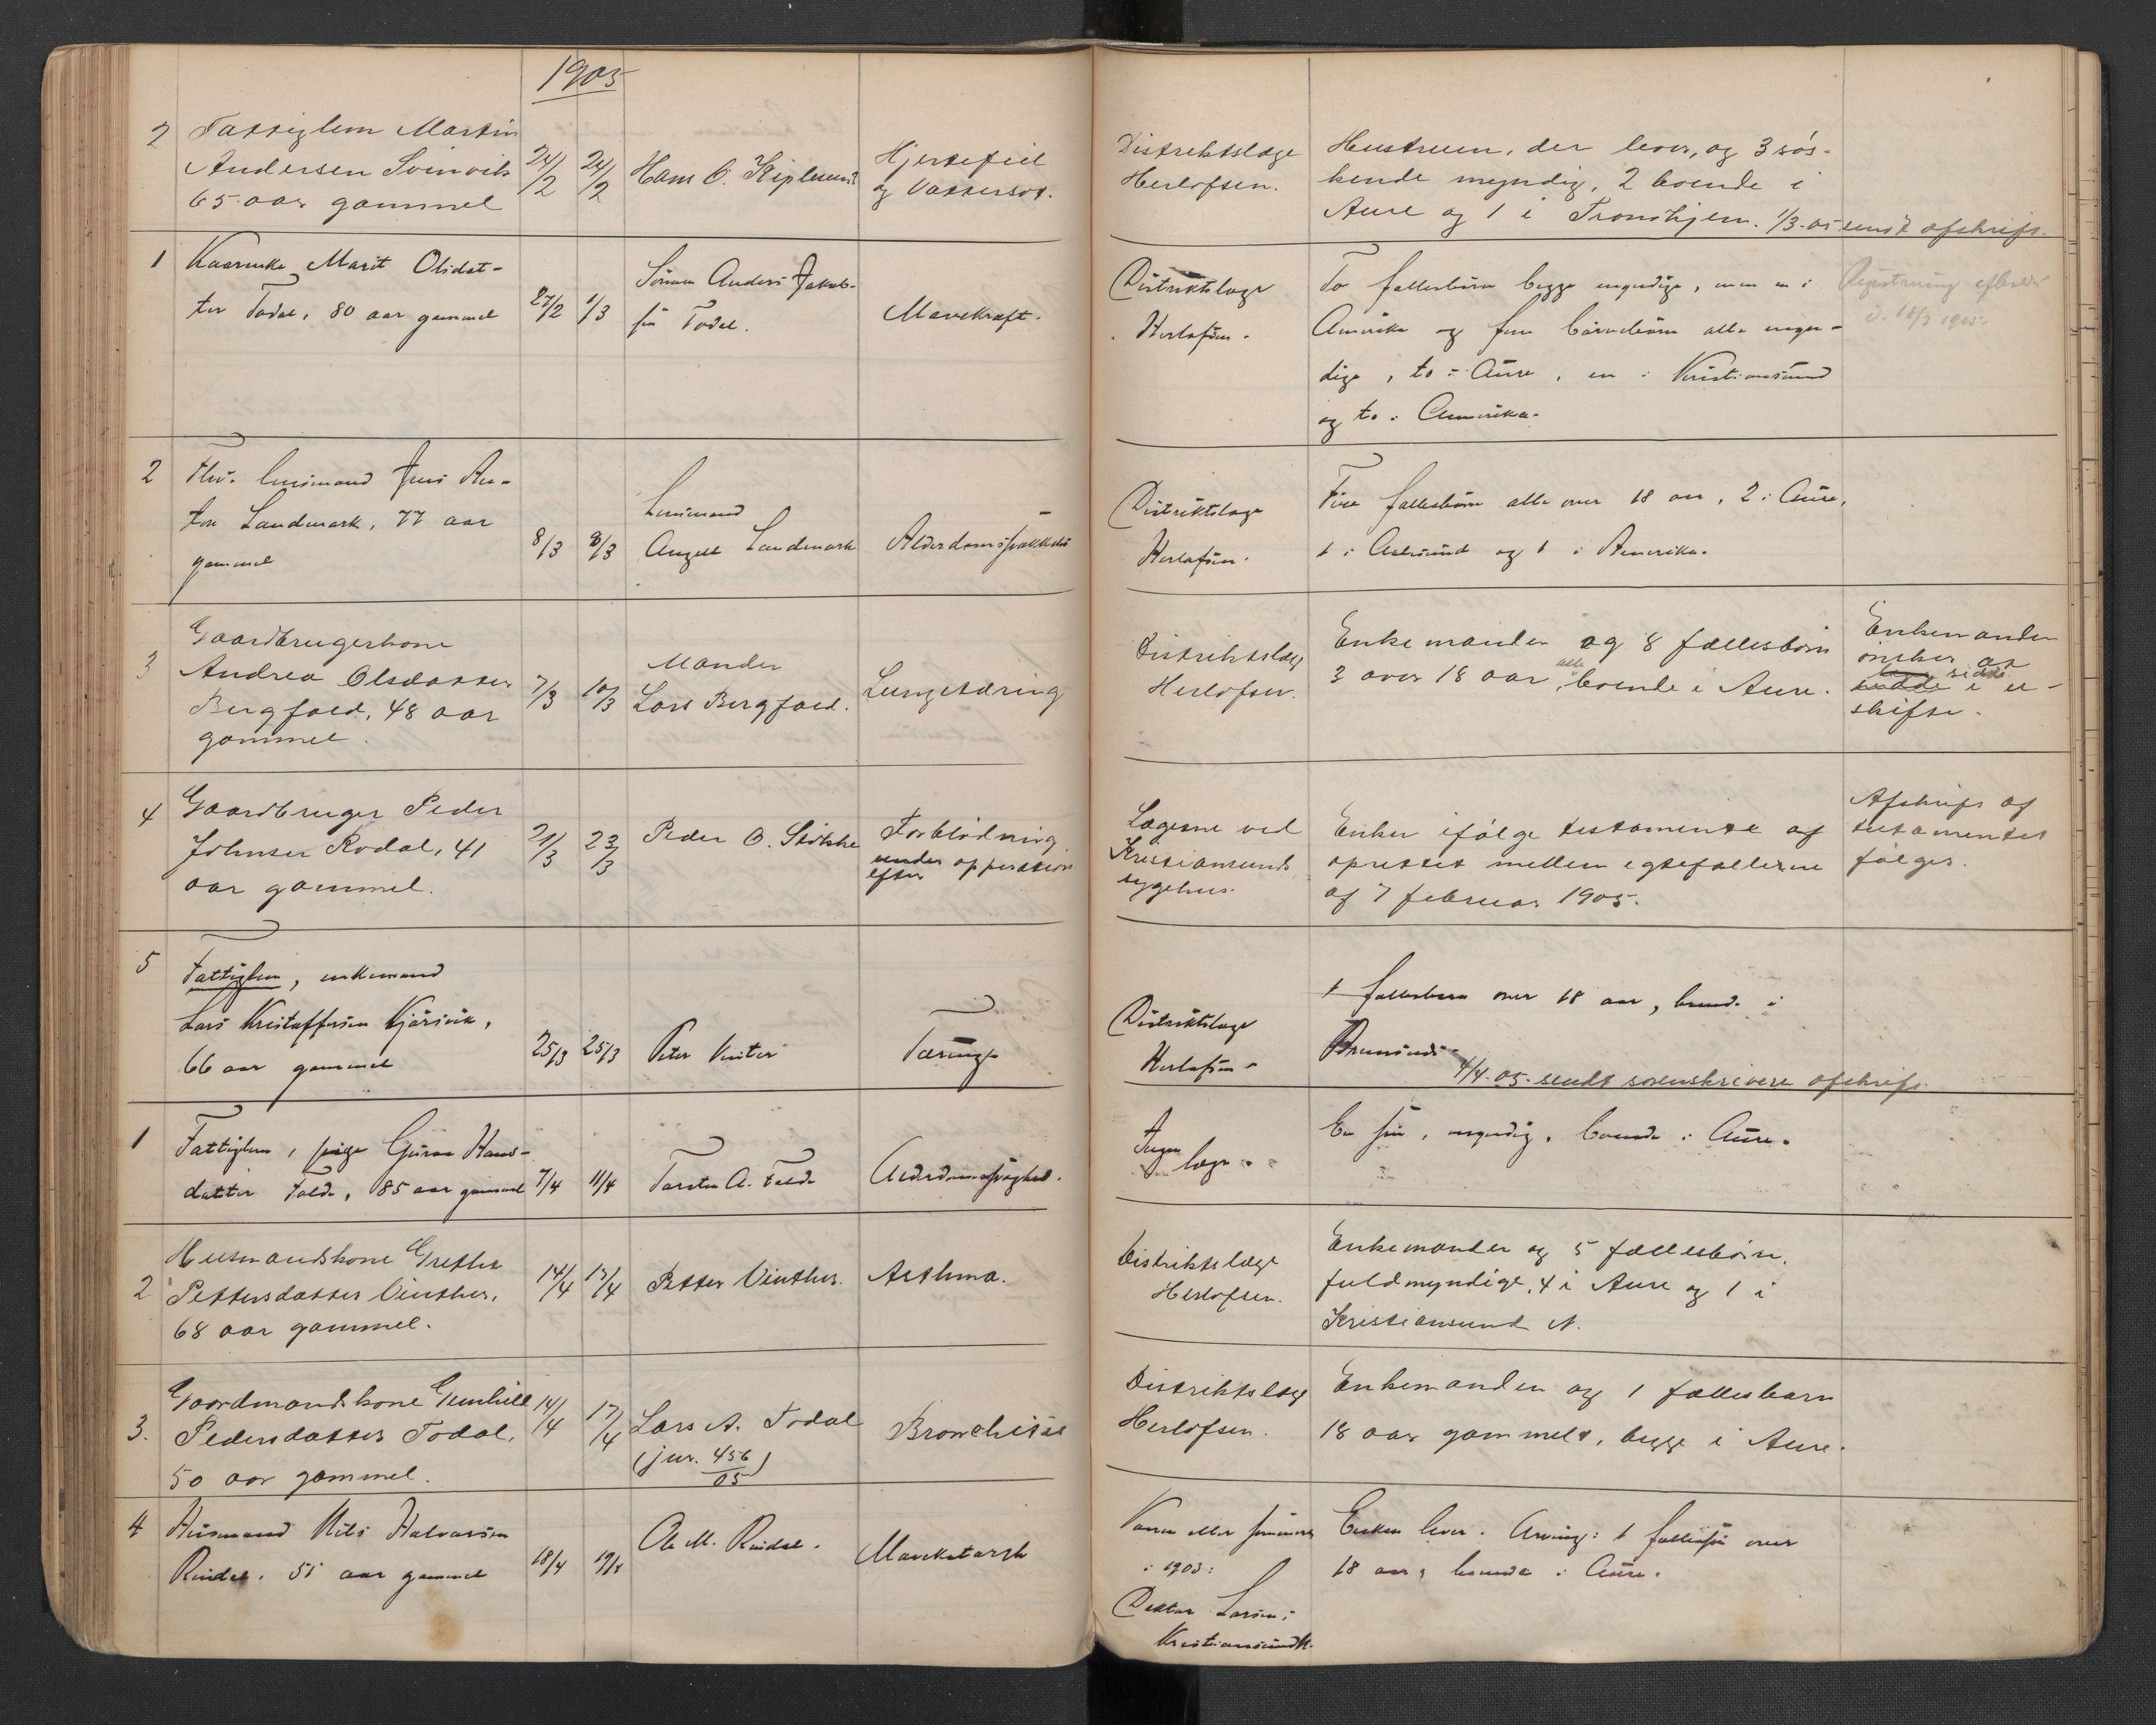 1905
2 Fattiglem Martin
Andersen Svinvik
65 aar gammel
24/2 24/2
Hans O.
Hjertefeil
og Vattersot.
Distriktslæge
Herlofsen.
Hustruen, der lever, og 3 søs-
kende myndig, 2 boende i
Aure og 1 i Tronhjem. 1/3-05 sendt afskrift.
1 Kaarenke Marit Olsdat-
ter Todal, 80 aar gammel
27/2 1/3
Sønnen Anders Jakob-
sen Todal.
Mavekræft.
Distriktslæge
Herlofsen.
To fællesbørn begge myndige, men en i
Amerika og fem børnebørn alle myn-
dige, to i Aure, en i Kristiansund
og to i Amerika.
Registrering afholdt
d. 18/3 1905.
2 Fhv. lensmand Jens An-
ton Landmark, 77 aar
gammel
8/3 8/3
Lensmand
August Landmark
Distriktslæge
Herlofsen.
Fire fællesbørn alle over 18 aar, 2 i Aure,
1 i Aalesund og 1 i Amerika.
3 Gaardbrugerkone
Andrea Olsdatter
Bergfald, 48 aar
gammel.
7/3 10/3
Manden
Lars Bergfald.
Lungetæring
Distriktslæge
Herlofsen.
Enkemanden og 8 fællesbørn
3 over 18 aar, alle boende i Aure.
Enkemanden
ønsker at
sidde i u-
skifte.
4 Gaardbruger Peder
Johnsen Rodal, 41
aar gammel.
21/3 23/3
Peder O.
Forblødning
under opperation
efter
Lægerne ved
Kristiansunds
sygehus.
Enken ifølge testamente af
oprettet mellem egtefællerne
af 7 februar 1905.
Afskrift af
testamentet
følger.
5 Fattiglem, enkemand
Lars Kristoffersen Kjørsvik,
66 aar gammel
25/3 25/3
Peter Vinter
Tæring
Distriktslæge
Herlofsen
1 fællesbarn over 18 aar, boende i
1/4-05 sendt sorenskriveren afskrift
1 Fattiglem, pige Guren Hans-
datter Folde, 85 aar gammel
7/4 11/4
Torsten A. Folde
Alderdomssvaghed.
Ingen
læge
En søn, myndig, boende i Aure.
2 Husmandskone Grethe
Pettersdatter Vinther,
68 aar gammel.
14/4 15/4
Petter Vinther.
Asthma.
Distriktslæge
Herlofsen.
Enkemanden og 5 fællesbørn,
fuldmyndige, 4 i Aure og 1 i
Kristiansund N.
3. Gaardmandskone Gunhild
Pedersdatter Todal,
50 aar gammel.
14/4 17/4
Lars A. Todal
(jur. 456/05)
Bronchitis
Distriktslæge
Herlofsen.
Enkemanden og 1 fællesbarn
18 aar gammelt, begge i Aure.
4 Husmand Nils Halvorsen
Rindal, 51 aar gammel
18/4 19/4
Ole M. Rindal.
Mavekatarrh
i 1903:
Doktor Larsen,
Kristiansund N.
Enken lever. Arving: 1 fællessøn over
18 aar, boende i Aure.